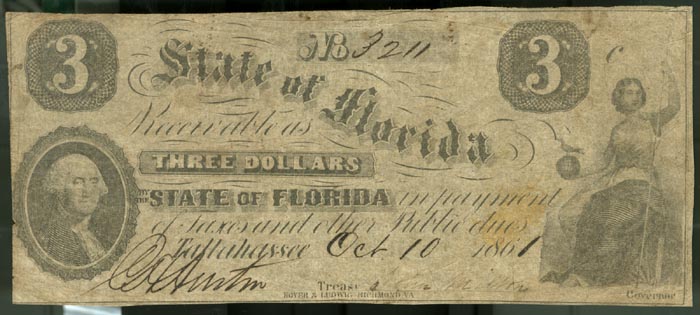 3
No 3211
3
C
State of Florida
Receivable as
THREE DOLLARS
BY THE STATE OF FLORIDA in payment
of taxes and other Public dues
Tallahassee Oct 10 1861
C H Austin
Treas.
Governor
HOYER & LUDWIG, RICHMOND, VA